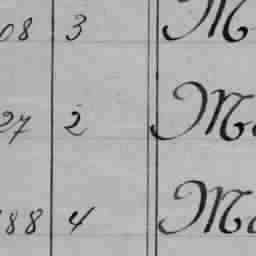 08 3 M
27 2 Ma
88 4 Ma